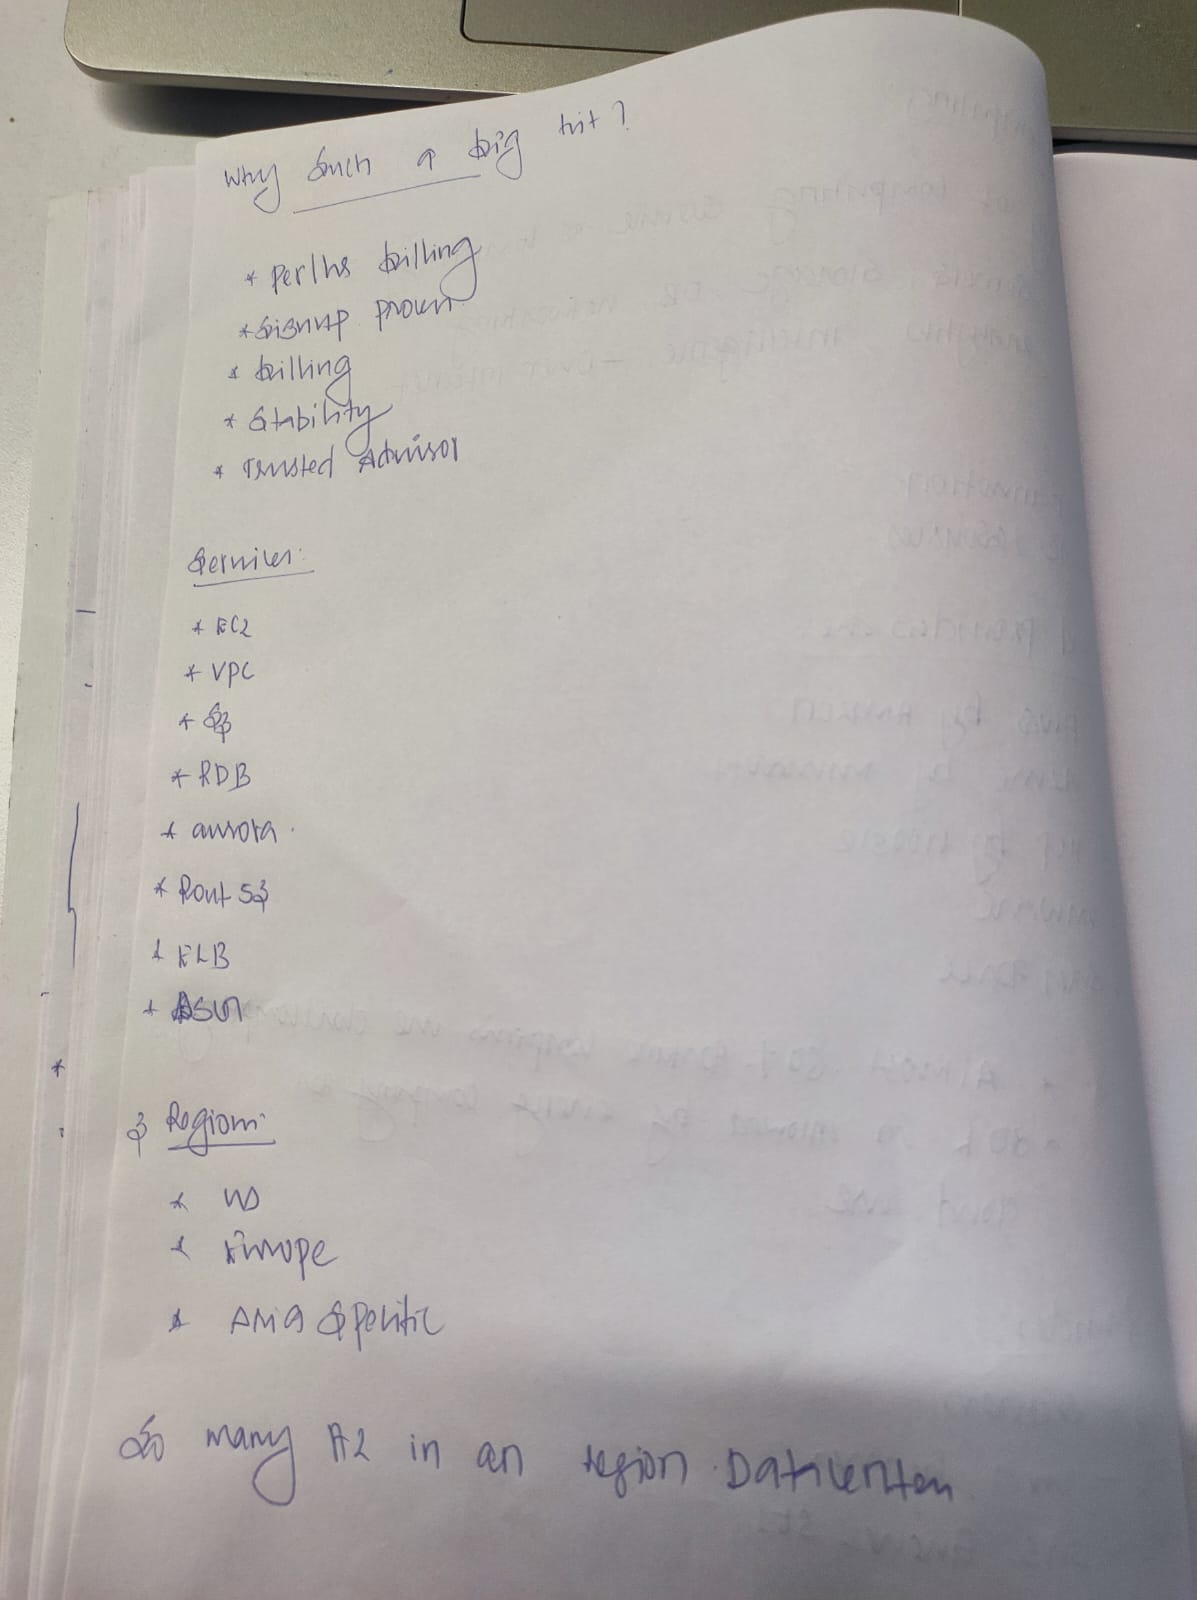 Why Such a big hit?
* Per/hs billing
* Signup process
* billing
* Stability
* Trusted Advisor
Services:
* EC2
* VPC
* S3
* RDB
* aurora
* Rout 53
* ELB
*
3 Regions:
* US
* Europe
* Asia &
So many AZ in an region Datacenters